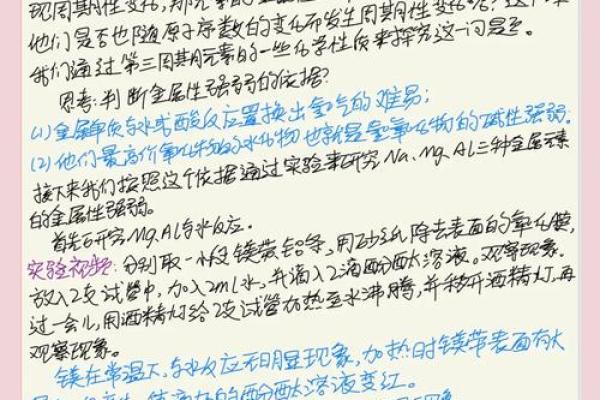 现周期性变化,那元素的金
他们是否也随原子序数的变化而发生周期性变化呢?这个
我们通过第三周期元素的一些化学性质来探究这一问题。
思考:判断金属性强弱的依据?
(1)金属单质与水或酸反应置换出氢气的难易;
(2)他们最高价氧化物的水化物也就是氢氧化物的碱性强弱.
接下来我们按照这个依据通过实验来研究Na、Mg、Al三种金属元素
的金属性强弱。
首先研究Mg、Al与水反应。
实验视频:分别取一小段镁带铝条,用砂纸除去表面的氧化膜,
放入2支试管中,加入2mL水,并滴入2滴酚酞溶液。观察现象.
过一会儿,用酒精灯给2支试管加热至水沸腾,并移开酒精灯,再
观察现象。
镁在常温下,与水反应无明显现象,加热时镁带表面有大
的酚酞溶液变红。